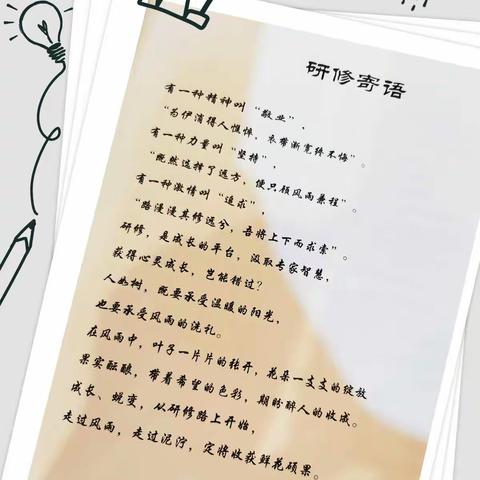 研修寄语
有一种精神叫“敬业”，
“为伊消得人憔悴，衣带渐宽终不悔”。
有一种力量叫“坚持”，
“既然选择了远方，便只顾风雨兼程”。
有一种激情叫“追求”，
“路漫漫其修远兮，吾将上下而求索”。
研修，是成长的平台，汲取专家智慧，
获得心灵成长，岂能错过？
人如树，既要承受温暖的阳光，
也要承受风雨的洗礼。
在风雨中，叶子一片片的张开，花朵一支支的绽放
果实酝酿，带着希望的色彩，期盼醉人的收成。
成长、蜕变，从研修路上开始，
走过风雨，走过泥泞，定将收获鲜花硕果。